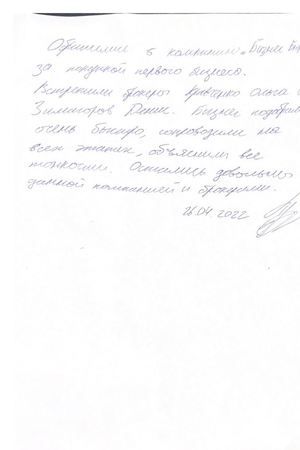 Обратились в компанию „Бизнес
за покупкой первого бизнеса.
Встретили брокеры Ольга и
Денис. Бизнес подобрали
очень быстро, сопроводили на
всех этапах, объяснили все
тонкости. Остались довольны
данной компанией и брокерами.
26.04.2022